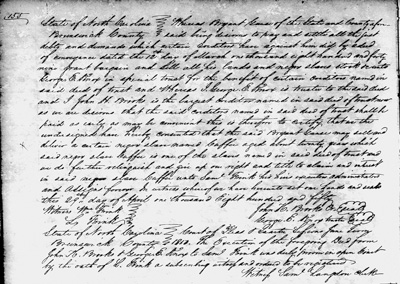 State of North Carolina Whereas Bryant Cause of the State and County afore
Brunswick County said being desirous to pay and settle all the just
debts and demands which certain Creditors have against him did by a deed
of dated the 12th day of March one thousand eight hundred and forty
Grant bargain and all his Lands and negro slaves stock &c unto
George E. Knox in special trust for the benefit of certain creditors named in
said deed of trust and Whereas I George E. Knox is trustee to the said deed
and I John H. Brooks is the largest creditor named in said deed of trust and
as we are desirous that the said Creditors named in said deed of trust shall be
paid as early as may be convenient this is therefore to certify that we the
undersigned have hereby consented that the said Bryant Cause may sell and
deliver a certain negro slave named Caffie aged about twenty years which
said negro slave Caffie is one of the slaves named in said deed of trust and
we do for the undersigned give up our right and title &c claim and interest
in said negro slave Caffie unto Saml Frink his heirs executors administrators
and Assigns forever In witness whereof we have hereunto set our hands and seals
this 29th day of April one thousand Eight hundred and
Witness Wm Frink John H. Brooks Seal
S. Frink George E. Knox trustee Seal
State of North Carolina Court of Pleas & Quarter Sessions June Term
Brunswick County The Execution of the foregoing Deed from
John H. Brooks & George E. Knox to Saml Frink was duly proven in open Court
by the oath of S. Frink a subscribing witness and ordered to be registered
Witness Saml Langdon Clk